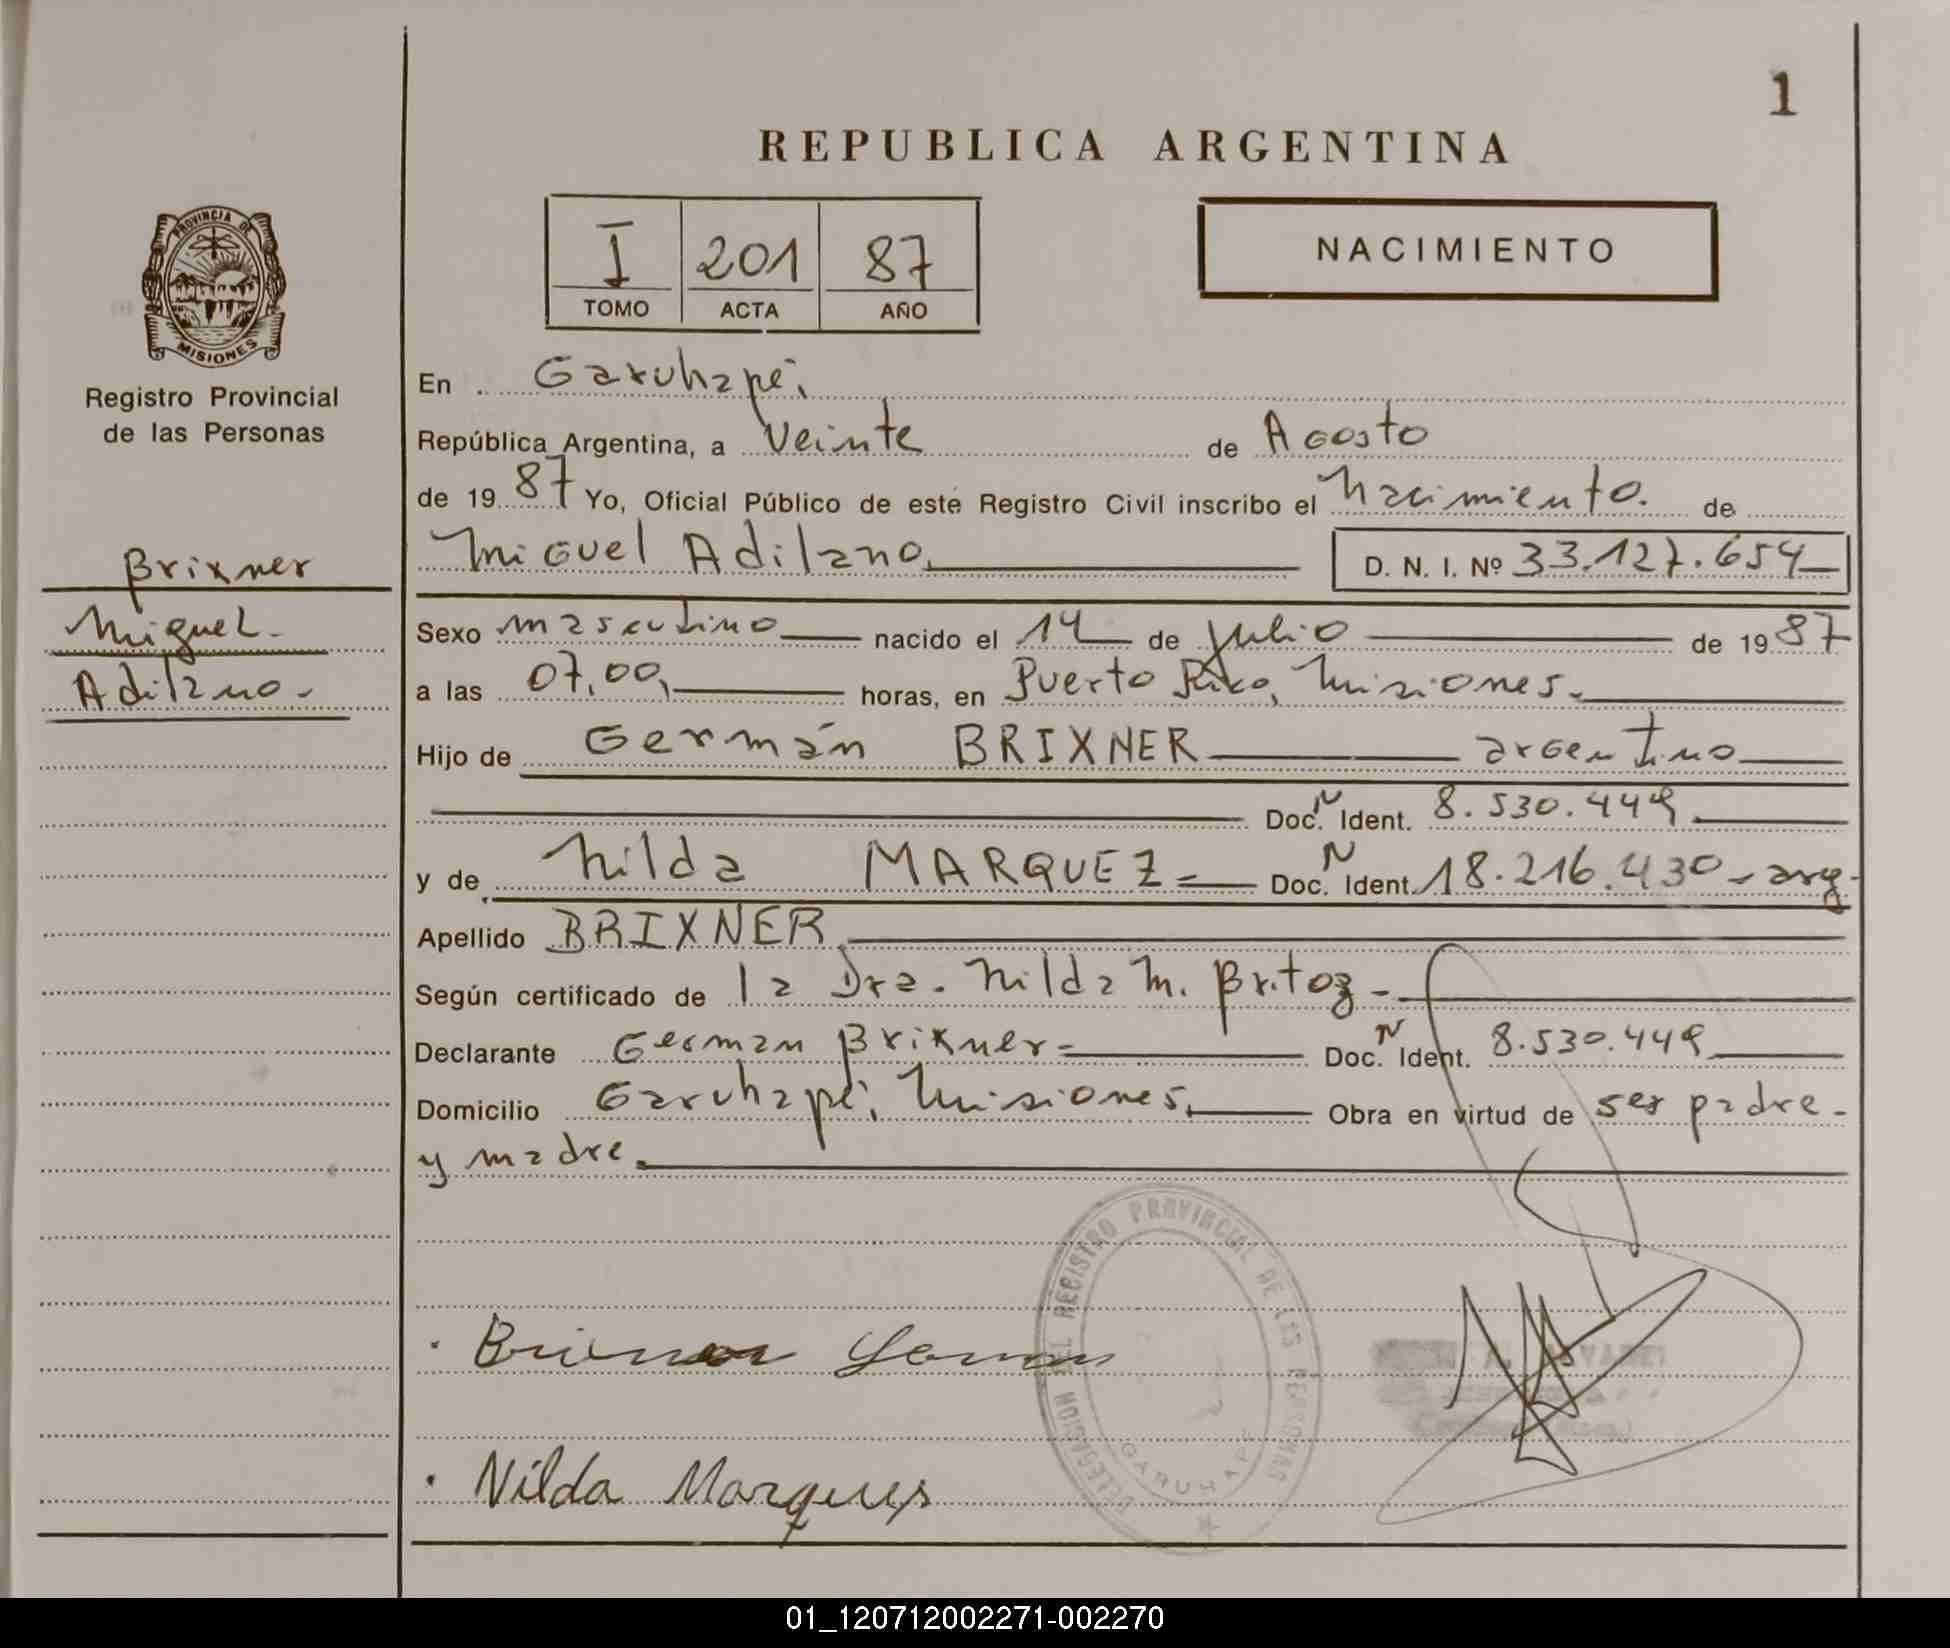 1
REPUBLICA ARGENTINA
I 201 87
TOMO ACTA AÑO
NACIMIENTO
PROVINCIA DE
MISIONES
Registro Provincial
de las Personas
Brixner
Miguel
Adilano.
En Garuhapé,
República Argentina, a Veinte de Agosto
de 1987 Yo, Oficial Público de este Registro Civil inscribo el nacimiento. de
Miguel Adilano, D. N. I. Nº 33.127.654
Sexo masculino nacido el 14 de Julio de 1987
a las 07,00, horas, en Puerto Rico, Misiones.
Hijo de Germán BRIXNER argentino
Doc. N Ident. 8.530.449
y de Nilda MARQUEZ- Doc. N Ident. 18.216.430- arg-
Apellido BRIXNER
Según certificado de la Dra. Nilda M. Britoz-
Declarante German Brixner- Doc. N Ident. 8.530.449
Domicilio Garuhapé, Misiones, Obra en virtud de ser padre-
y madre.
DELEGACION DEL REGISTRO PROVINCIAL DE LAS PERSONAS
GARUHAPE
Brixner German
Nilda Marques
01_120712002271-002270